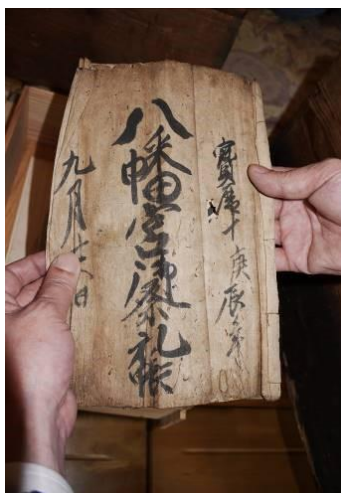 寳暦十庚辰年
八幡宮御祭礼帳
九月十日